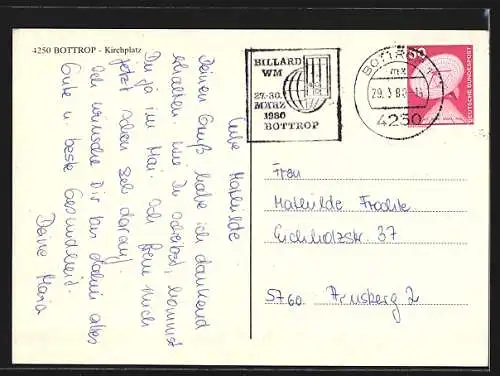 4250 BOTTROP - Kirchplatz
Liebe Mathilde
Deinen Gruß habe ich dankend
erhalten. Wie Du schreibst, kommst
Du ja im Mai. Ich freue mich
jetzt schon sehr darauf.
Ich wünsche Dir bis dahin alles
Gute u beste Gesundheit.
Deine Maria
BILLARD
WM
27.-30.
MÄRZ
1980
BOTTROP
BOTTROP 1
29.-3.80
4250
DEUTSCHE BUNDESPOST
Frau
Mathilde
Eichholzstr. 37
5760 Arnsberg 2